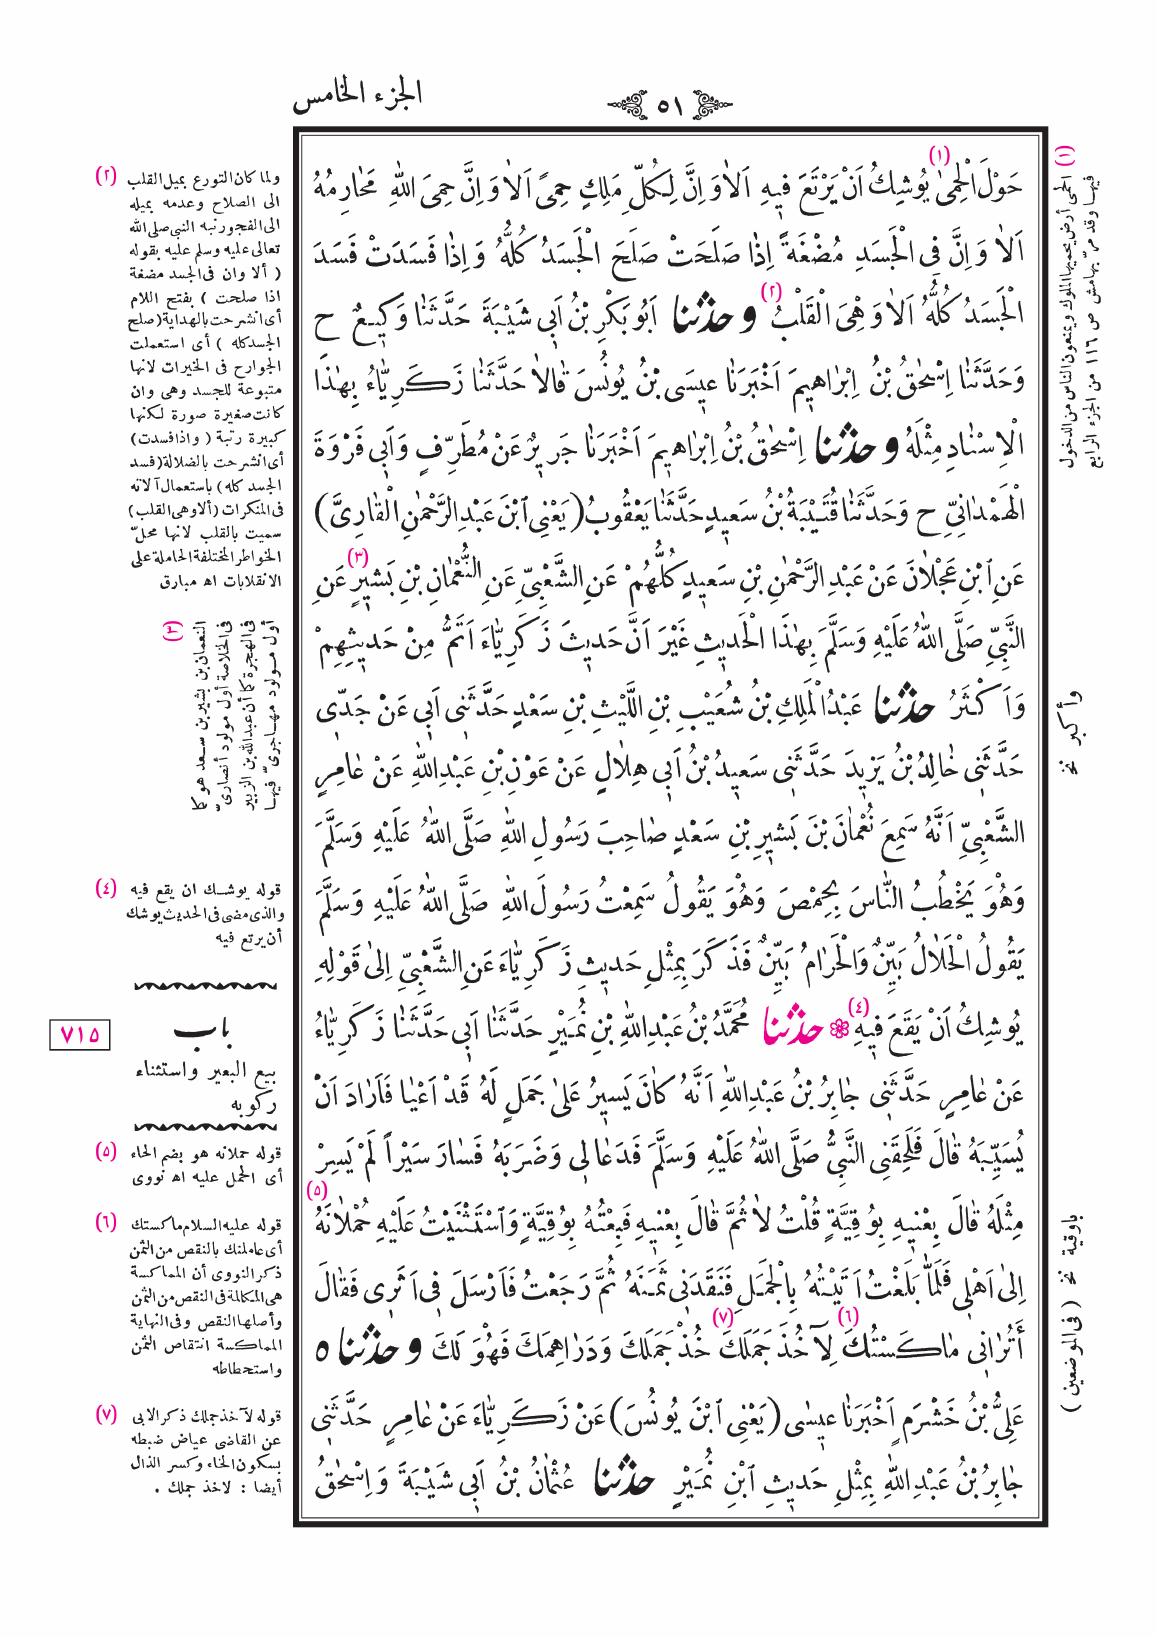 الجزء الخامس
٥١
حَوْلَ الْحِمٰى (١) يُوشِكُ اَنْ يَرْتَعَ فيهِ اَلاٰ وَاِنَّ لِكُلِّ مَلِكٍ حِمىً اَلاٰ وَاِنَّ حِمَى اللّٰهِ مَحَارِمُهُ
اَلاٰ وَاِنَّ فِى الْجَسَدِ مُضْغَةً اِذٰا صَلَحَتْ صَلَحَ الْجَسَدُ كُلُّهُ وَاِذٰا فَسَدَتْ فَسَدَ
الْجَسَدُ كُلُّهُ اَلاٰ وَهْىَ الْقَلْبُ (٢) و حدثنا اَبُو بَكْرِ بْنُ اَبى شَيْبَةَ حَدَّثَنٰا وَكيعٌ ح
وَحَدَّثَنٰا اِسْحٰقُ بْنُ اِبْرٰاهيمَ اَخْبَرَنٰا عيسَى بْنُ يُونُسَ قٰالاٰ حَدَّثَنٰا زَكَرِيّٰاءُ بِهٰذَا
الْاِسْنٰادِ مِثْلَهُ و حدثنا اِسْحٰقُ بْنُ اِبْرٰاهيمَ اَخْبَرَنٰا جَريرٌ عَنْ مُطَرِّفٍ وَاَبى فَرْوَةَ
الْهَمْدٰانِىِّ ح وَحَدَّثَنٰا قُتَيْبَةُ بْنُ سَعيدٍ حَدَّثَنٰا يَعْقُوبُ (يَعْنِى ابْنَ عَبْدِ الرَّحْمٰنِ الْقٰارِىَّ)
عَنِ ابْنِ عَجْلاٰنَ عَنْ عَبْدِ الرَّحْمٰنِ بْنِ سَعيدٍ كُلُّهُمْ عَنِ الشَّعْبِىِّ عَنِ النُّعْمٰانِ بْنِ بَشيرٍ (٣) عَنِ
النَّبِىِّ صَلَّى اللّٰهُ عَلَيْهِ وَسَلَّمَ بِهٰذَا الْحَديثِ غَيْرَ اَنَّ حَديثَ زَكَرِيّٰاءَ اَتَمُّ مِنْ حَديثِهِمْ
وَاَكْثَرُ حدثنا عَبْدُ الْمَلِكِ بْنُ شُعَيْبِ بْنِ اللَّيْثِ بْنِ سَعْدٍ حَدَّثَنى اَبى عَنْ جَدّى
حَدَّثَنى خٰالِدُ بْنُ يَزيدَ حَدَّثَنى سَعيدُ بْنُ اَبى هِلاٰلٍ عَنْ عَوْنِ بْنِ عَبْدِ اللّٰهِ عَنْ عٰامِرٍ
الشَّعْبِىِّ اَنَّهُ سَمِعَ نُعْمٰانَ بْنَ بَشيرِ بْنِ سَعْدٍ صٰاحِبَ رَسُولِ اللّٰهِ صَلَّى اللّٰهُ عَلَيْهِ وَسَلَّمَ
وَهْوَ يَخْطُبُ النّٰاسَ بِحِمْصَ وَهْوَ يَقُولُ سَمِعْتُ رَسُولَ اللّٰهِ صَلَّى اللّٰهُ عَلَيْهِ وَسَلَّمَ
يَقُولُ الْحَلاٰلُ بَيِّنٌ وَالْحَرٰامُ بَيِّنٌ فَذَكَرَ بِمِثْلِ حَديثِ زَكَرِيّٰاءَ عَنِ الشَّعْبِىِّ اِلىٰ قَوْلِهِ
يُوشِكُ اَنْ يَقَعَ فيهِ (٤) ❁ حدثنا مُحَمَّدُ بْنُ عَبْدِ اللّٰهِ بْنِ نُمَيْرٍ حَدَّثَنٰا اَبى حَدَّثَنٰا زَكَرِيّٰاءُ
عَنْ عٰامِرٍ حَدَّثَنى جٰابِرُ بْنُ عَبْدِ اللّٰهِ اَنَّهُ كٰانَ يَسيرُ عَلىٰ جَمَلٍ لَهُ قَدْ اَعْيٰا فَاَرٰادَ اَنْ
يُسَيِّبَهُ قٰالَ فَلَحِقَنِى النَّبِىُّ صَلَّى اللّٰهُ عَلَيْهِ وَسَلَّمَ فَدَعٰا لى وَضَرَبَهُ فَسٰارَ سَيْراً لَمْ يَسِرْ
مِثْلَهُ قٰالَ بِعْنيهِ بِوُقِيَّةٍ قُلْتُ لاٰ ثُمَّ قٰالَ بِعْنيهِ فَبِعْتُهُ بِوُقِيَّةٍ وَاسْتَثْنَيْتُ عَلَيْهِ حُمْلاٰنَهُ (٥)
اِلىٰ اَهْلى فَلَمّٰا بَلَغْتُ اَتَيْتُهُ بِالْجَمَلِ فَنَقَدَنى ثَمَنَهُ ثُمَّ رَجَعْتُ فَاَرْسَلَ فى اَثَرى فَقٰالَ
أَتُرٰانى مٰاكَسْتُكَ (٦) لِآخُذَ جَمَلَكَ (٧) خُذْ جَمَلَكَ وَدَرٰاهِمَكَ فَهْوَ لَكَ و حدثنا ٥
عَلِىُّ بْنُ خَشْرَمٍ اَخْبَرَنٰا عيسٰى (يَعْنِى ابْنَ يُونُسَ) عَنْ زَكَرِيّٰاءَ عَنْ عٰامِرٍ حَدَّثَنى
جٰابِرُ بْنُ عَبْدِ اللّٰهِ بِمِثْلِ حَديثِ ابْنِ نُمَيْرٍ حدثنا عُثْمٰانُ بْنُ اَبى شَيْبَةَ وَاِسْحٰقُ
(١) الحمى أرض يحميها الملوك ويمنعون الناس من الدخول
فيها وقد مر بهامش ص ١١٦ من الجزء الرابع
وأكبر نخ
باوقية نخ (فى الموضعين)
(٢) ولما كان التورع بميل القلب
الى الصلاح وعدمه بميله
الى الفجور نبه النبى صلى الله
تعالى عليه وسلم عليه بقوله
( ألا وان فى الجسد مضغة
اذا صلحت ) بفتح اللام
أى انشرحت بالهداية (صلح
الجسد كله ) أى استعملت
الجوارح فى الخيرات لانها
متبوعة للجسد وهى وان
كانت صغيرة صورة لكنها
كبيرة رتبة ( واذا فسدت)
أى انشرحت بالضلالة (فسد
الجسد كله) باستعمال آلاته
فى المنكرات (ألا وهى القلب)
سميت بالقلب لانها محلّ
الخواطر المختلفة الحاملة على
الانقلابات اه مبارق
(٣) النعمان بن بشير بن سعد هو كما
فى الخلاصة أول مولود أنصارىّ
فى الهجرة كما أن عبدالله بن الزبير
أول مولود مهاجرىّ فيها
(٤) قوله يوشك ان يقع فيه
والذى مضى فى الحديث يوشك
أن يرتع فيه
٧١٥
باب
بيع البعير واستثناء
ركوبه
(٥) قوله حملانه هو بضم الحاء
أى الحمل عليه اه نووى
(٦) قوله عليه السلام ماكستك
أى عاملتك بالنقص من الثمن
ذكر النووى أن المماكسة
هى المكالمة فى النقص من الثمن
وأصلها النقص وفى النهاية
المماكسة انتقاص الثمن
واستحطاطه
(٧) قوله لآخذ جملك ذكر الابى
عن القاضى عياض ضبطه
بسكون الخاء وكسر الذال
أيضا : لاخذ جملك .